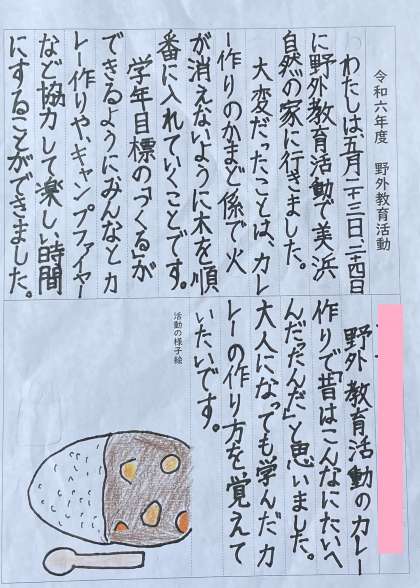 令和六年度 野外教育活動
わたしは、五月二十三日、二十四日
に野外教育活動で美浜
自然の家に行きました。
大変だったことは、カレ
ー作りのかまど係で火
が消えないように木を順
番に入れていくことです。
学年目標の「つくる」が
できるようにみんなとカ
レー作りや、キャンプファイヤー
など協力して楽しい時間
にすることができました。
野外教育活動のカレー
作りで「昔はこんなにたいへ
んだったんだ」と思いました。
大人になっても学んだカ
レーの作り方を覚えて
いたいです。
活動の様子絵